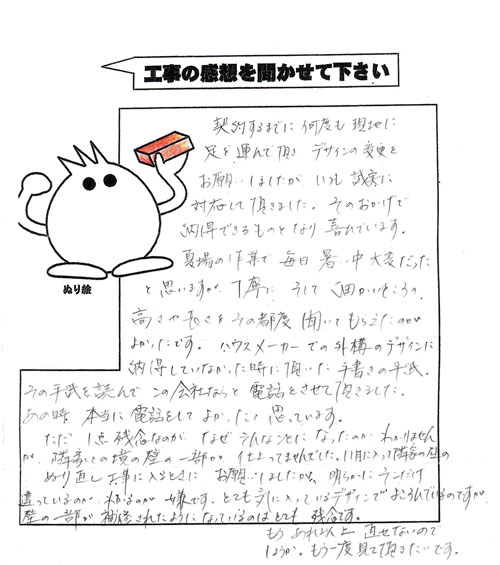 工事の感想を聞かせて下さい
契約するまでに何度も現地に
足を運んで頂き デザインの変更を
お願いしましたが いつも誠実に
対応して頂きました。そのおかげで
納得できるものとなり喜んでいます。
夏場の作業で毎日暑い中大変だった
と思いますが、丁寧に そして細かいところの
高さや長さをその都度聞いてもらえたのが
よかったです。ハウスメーカーでの外構のデザインに
納得していなかった時に頂いた手書きの手紙。
ぬり絵
その手紙を読んでこの会社ならと電話をさせて頂きました。
あの時 本当に電話をしてよかったと思っています。
ただ 1点残念なのが、なぜそんなことになったのかわかりません
が、隣家との境の壁の一部が仕上ってませんでした。11月に入って隣家の壁の
ぬり直し工事に入るときに お願いしましたが、明らかにそこだけ
違っているのが わかるのが嫌です。とても気に入っているデザインでよろこんでいるのですが
壁の一部が補修されたようになっているのはとても残念です。
もうあれ以上直せないので
しょうか。もう一度見て頂きたいです。